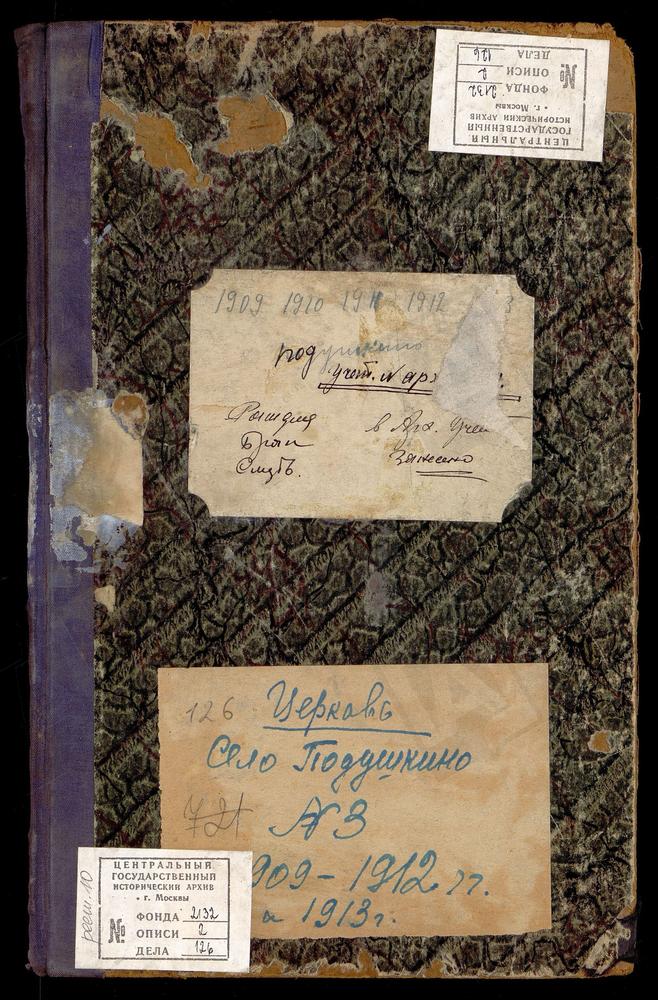 ЦЕНТРАЛЬНЫЙ
ГОСУДАРСТВЕННЫЙ
ИСТОРИЧЕСКИЙ АРХИВ
• г. Москвы
№ ФОНДА 2132
ОПИСИ 2
ДЕЛА 126
1909 1910 1911 1912 3
Подушкино
учет. № арх
в Арх. Учет
Занесено
126 Церковь
Село Подушкино
721 № 3
909 - 1912 гг.
и 1913 г.
ЦЕНТРАЛЬНЫЙ
ГОСУДАРСТВЕННЫЙ
ИСТОРИЧЕСКИЙ АРХИВ
• г. Москвы
№ ФОНДА 2132
ОПИСИ 2
ДЕЛА 126